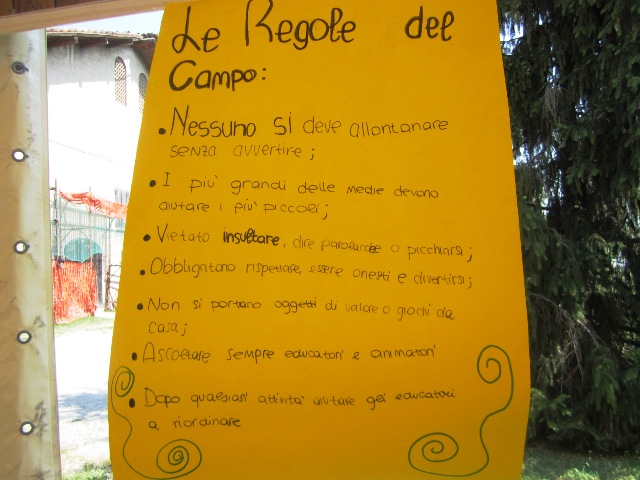 Le Regole del
Campo:
• Nessuno si deve allontanare
senza avvertire;
• I più grandi delle medie devono
aiutare i più piccoli;
• Vietato insultare, dire parolacce o picchiarsi;
• Obbligatorio rispettare, essere onesti e divertirsi;
• Non si portano oggetti di valore o giochi da
casa;
• Ascoltare sempre educatori e animatori
• Dopo qualsiasi attività aiutare gli educatori
a riordinare